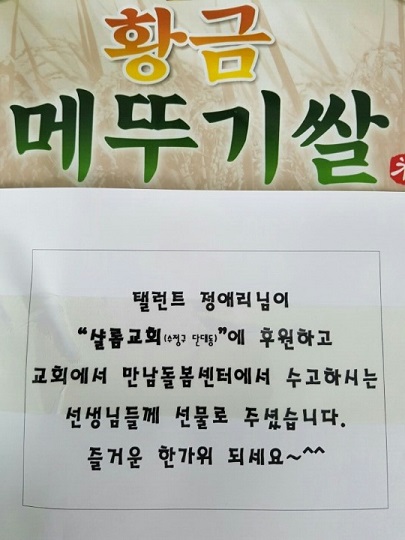 황금
메뚜기쌀
탤런트 정애리님이
“샬롬교회(수정구 단대동)”에 후원하고
교회에서 만남돌봄센터에서 수고하시는
선생님들께 선물로 주셨습니다.
즐거운 한가위 되세요~^^